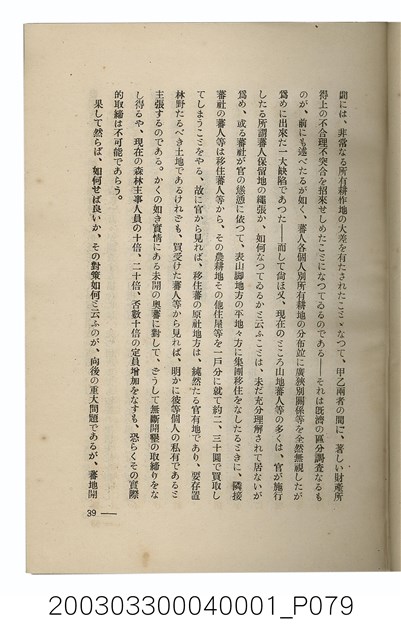 間には、非常なる所有耕作地の大差を有たされたことゝなつて、甲乙兩者の間に、著しい財產所
得上の不合理不突合を招來せしめたことになつてゐるのである――それは既濟の區分調查なるも
のが、前にも述べたるが如く、蕃人各個人別所有耕地の分布並に廣狹別關係等を全然無視したが
爲めに出來た一大缺陷であつた――而して尙ほ又、現在のところ山地蕃人等の多くは、官が施行
したる所謂蕃人保留地の繩張か、如何なつてゐるかと云ふことは、未だ充分理解されて居ないが
爲め、或る蕃社が官の慫慂に依つて、表山脚地方の平地々方に集團移住をなしたるときに、隣接
蕃社の蕃人等は移住蕃人等から、その農耕地その他住屋等を一戶分に就て約二、三十圓で買取し
てしまうことをやる、故に官から見れば、移住蕃の原社地方は、純然たる官有地であり、要存置
林野たるべき土地であるけれども、買受けた蕃人等から見れば、明かに彼等個人の私有であると
主張するのである。かくの如き實情にある未開の奧蕃に對して、どうして無斷開墾の取締りをな
し得るや、現在の森林主事人員の十倍、二十倍、否數十倍の定員增加をなすも、恐らくその實際
的取締は不可能であらう。
果して然らば、如何せば良いか、その對策如何と云ふのが、向後の重大問題であるが、蕃地開
39
200303300040001_P079